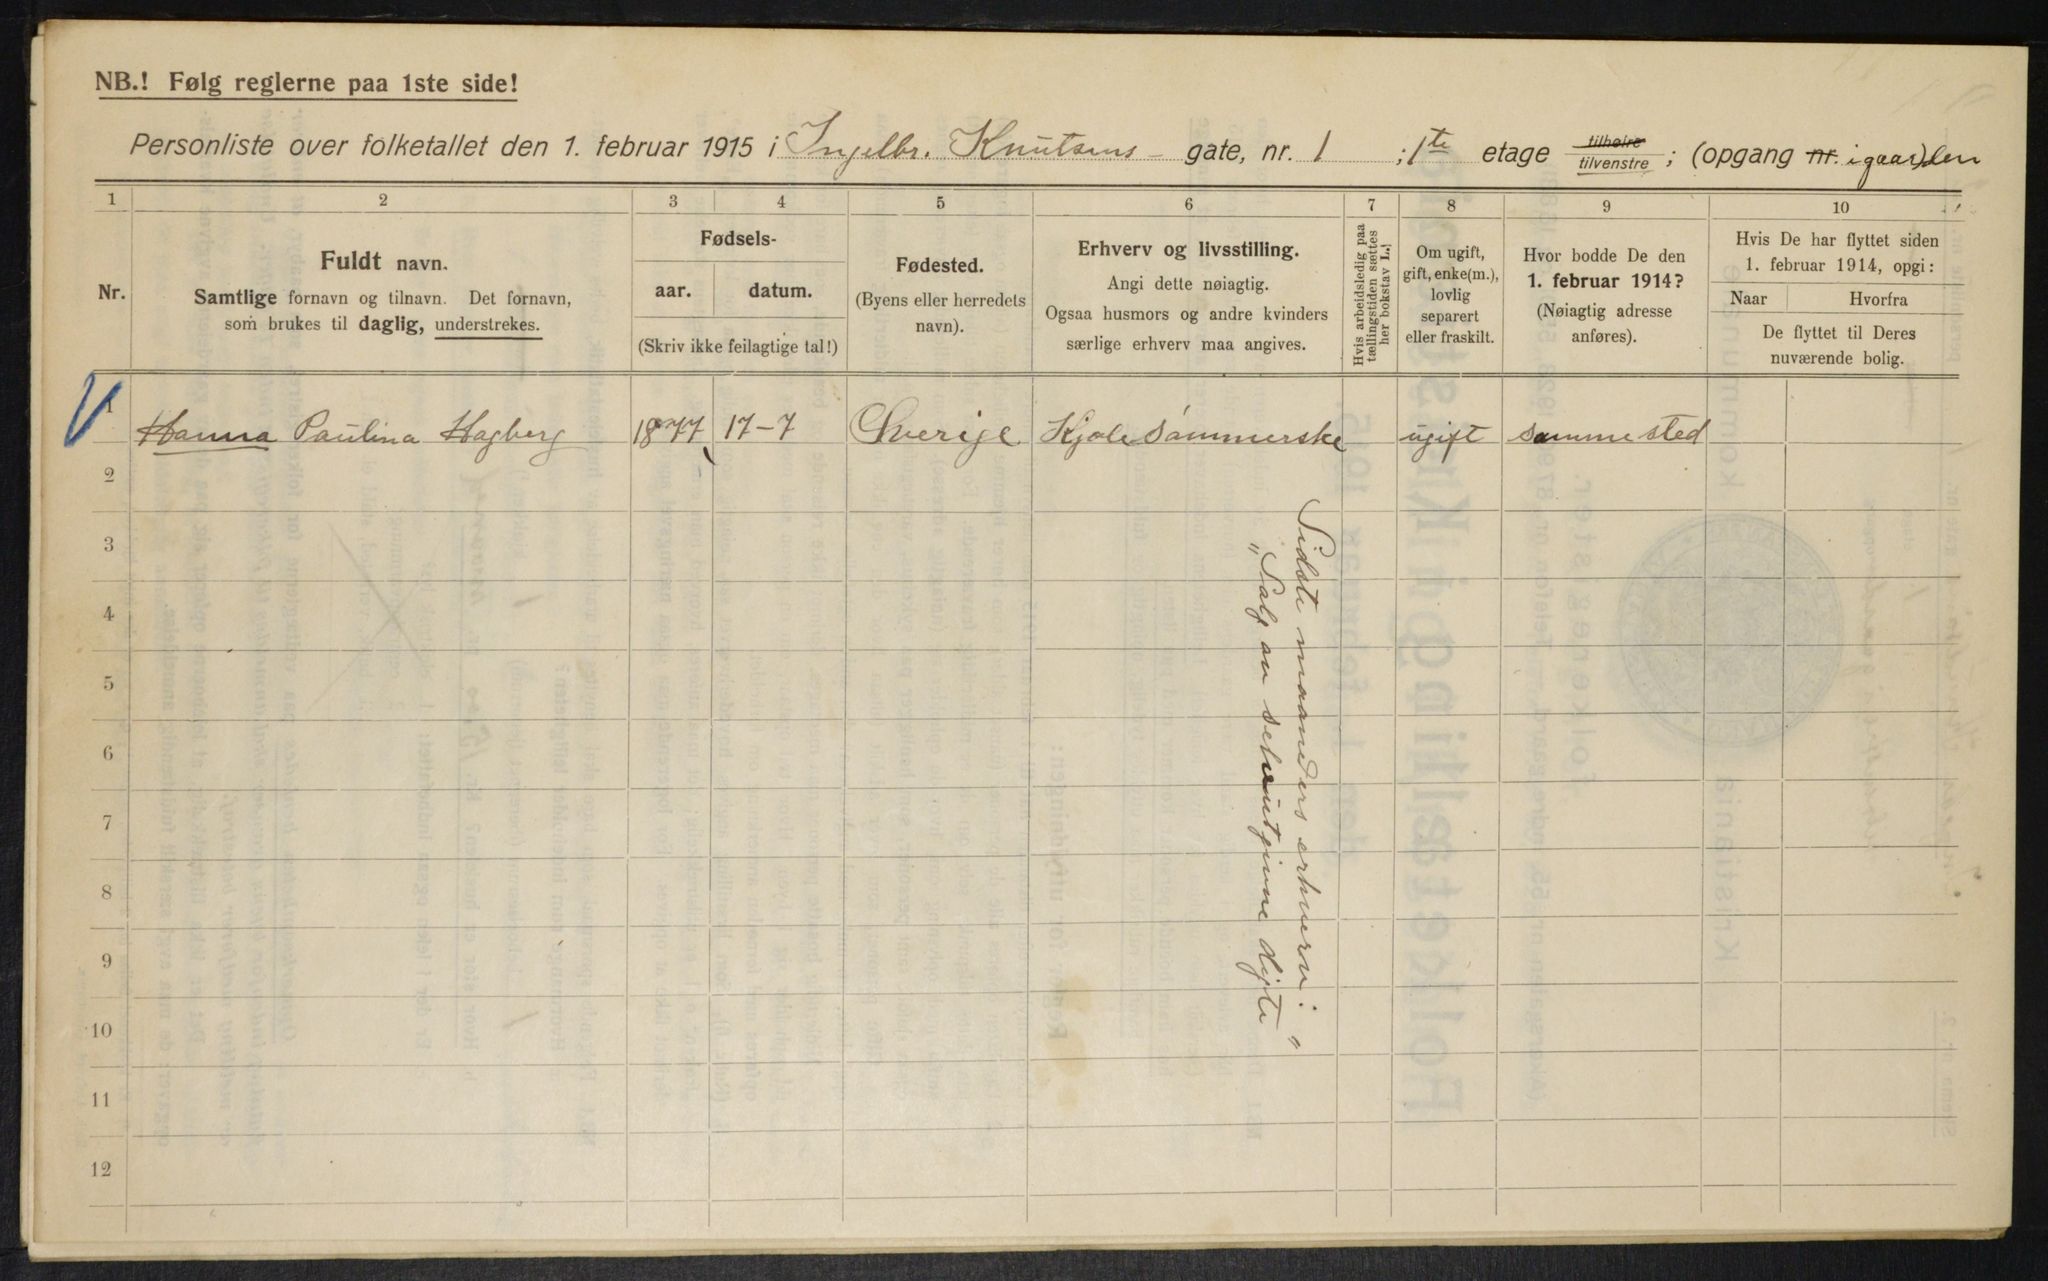 NB.! Følg reglerne paa 1ste side!
Personliste over folketallet den 1. februar 1915 i Ingelbr. Knutsens gate, nr. 1 ; 1te etage tilhøire tilvenstre ; (opgang nr. i gaarden)
1 2 3 4 5 6 7 8 9 10
Nr.
Fuldt navn.
Samtlige fornavn og tilnavn. Det fornavn,
som brukes til daglig, understrekes.
Fødsels-
aar. datum.
(Skriv ikke feilagtige tal!)
Fødested.
(Byens eller herredets
navn).
Erhverv og livsstilling.
Angi dette nøiagtig.
Ogsaa husmors og andre kvinders
særlige erhverv maa angives.
Hvis arbeidsledig paa
tællingstiden sættes
her bokstav L.!
Om ugift,
gift, enke(m.),
lovlig
separert
eller fraskilt.
Hvor bodde De den
1. februar 1914?
(Nøiagtig adresse
anføres).
Hvis De har flyttet siden
1. februar 1914, opgi:
Naar Hvorfra
De flyttet til Deres
nuværende bolig.
1 Hanna Paulina Hagberg 1877 17-7 Sverige Kjolesömmerske ugift samme sted
2
3
4
5
6
7
8
9
10
11
12
Sidste maaneders erhverv:
"Salg av selvutgivne digte"